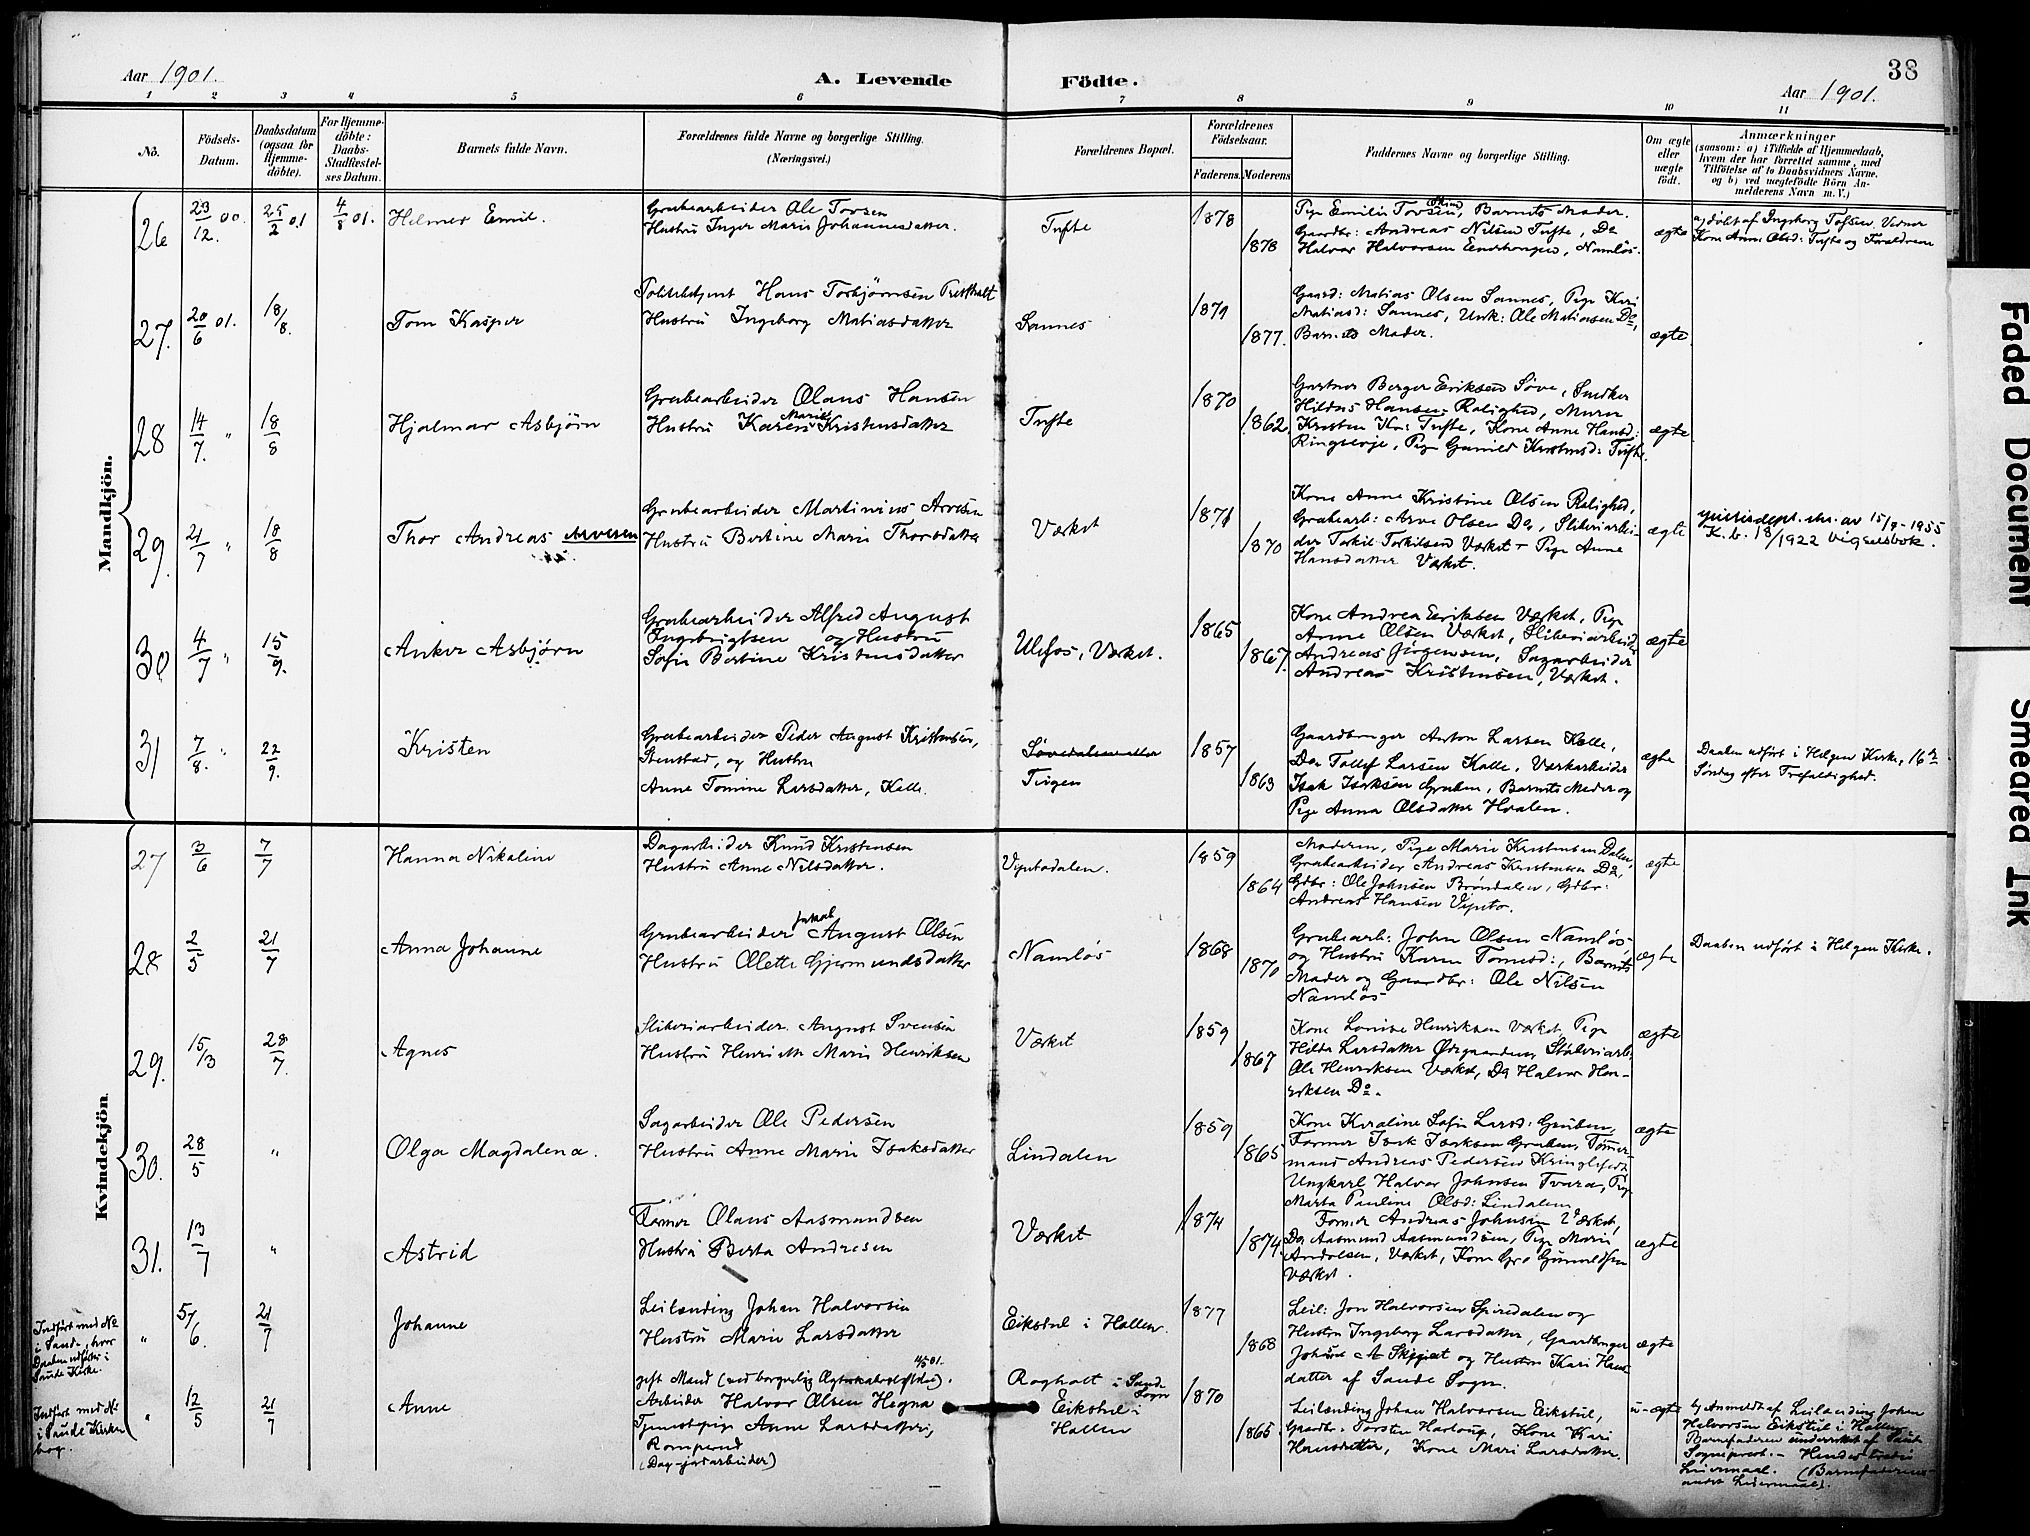 38
Aar 1901.
A. Levende
Födte.
Aar 1901.
1 2 3 4 5 6 7 8 9 10 11
No.
Födsels-
Datum.
Daabsdatum
(ogsaa for
Hjemme-
döbte).
For Hjemme-
döbte:
Daabs-
Stadfæstel-
ses Datum.
Barnets fulde Navn.
Forældrenes fulde Navne og borgerlige Stilling.
(Næringsvei.)
Forældrenes Bopæl.
Forældrenes
Födselsaar.
Faderens. Moderens.
Faddernes Navne og borgerlige Stilling.
Om ægte
eller
uægte
födt.
Anmærkninger
(saasom: a) i Tilfælde af Hjemmedaab,
hvem der har forrettet samme, med
Tilföielse af to Daabsvidners Navne.
og b) ved uægtefödte Börn An-
melderens Navn m. V.)
Mandkjön.
26
23/12 00
25/2 01
4/8 01.
Helmer Emil.
Grubearbeider Ole Torsen
Hustru Inger Marie Johannesdatter.
Tufte
1878
1878
Pige Emilie Torsen, Barnets Moder.
Gaardbr: Andreas Nilsen Tufte, Do
Halvor Halvorsen, Namløs.
ægte
a) døbt af Ingeborg
Kone Anne Olsd: Tufte og Forældrene
27.
20/6 01.
18/8.
Tom Kasper
Politibetjent Hans Torbjørnsen
Hustru Ingeborg Matiasdatter
Sannes
1879
1877.
Gaard: Matias Olsen Sannes, Pige Kari
Matiasd: Sannes, Unk: Ole Matiasen Do,
Barnets Moder.
ægte
28
14/7. "
18/8
Hjalmar Asbjørn
Grubearbeider Olaus Hansen
Hustru Karen Marie Kristensdatter
Tufte
1870
1862
Gartner Berger Eriksen Søve, Snedker
Hildus Hansen Rolighed, Murer
Kristen Kr: Tufte, Kone Anne Hansd:
Ringsevje, Pige Gunild Kristensd: Tufte.
ægte
29.
21/7 "
18/8
Thor Andreas Arvesen
Grubearbeider Martinius Arvesen
Hustru Bertine Marie Thorsdatter
Værket
1871
1870
Kone Anne Kristine Olsen Rolighed,
Grubearb: Arve Olsen Do, Sliberiarbei-
der Torkil Torkilsen Værket – Pige Anne
Hansdatter Værket.
ægte
Justisdept. skr. av 15/7-1955
K. b. 18/1922 vigselsbok.
30
4/7 "
15/9.
Anker Asbjørn
Grubearbeider Alfred August
Ingebrigtsen og Hustru
Sofie Bertine Kristensdatter
Ulefos, Værket.
1865
1867.
Kone Andrea Eriksen Værket, Pige
Anne Olsen Værket, Sliberiarbeider
Andreas Jørgensen, Sagarbeider
Andreas Kristensen, Værket.
ægte
31
7/8. "
22/9.
Kristen
Grubearbeider Peder August Kristensen,
Stenstad, og Hustru
Anne Tomine Larsdatter, Kelle.
Tvigen
1857
1863
Gaardbruger Anton Larsen Kelle,
Do Tollef Larsen Kalle, Værkarbeider
Isak Isaksen Gruben, Barnets Moder og
Pige Anna Olsdatter Hvalen.
ægte
Daaben udført i Helgen Kirke, 16de
Søndag efter Trefoldighed.
Kvindekjön
27
3/6
7/7
Hanna Nikoline
Dagarbeider Knud Kristensen
Hustru Anne Nilsdatter.
Vipetodalen.
1859
1864
Moderen, Pige Marie Kristensen Dalen,
Grubearbeider Andreas Kristensen Do,
Gdbr: Ole Johnsen Brøndalen, Gdbr:
Andreas Hansen Vipeto.
ægte
28
2/5
21/7
Anna Johanne
Grubearbeider Jakob August Olsen
Hustru Olette Gjermundsdatter
Namløs
1868
1870
Grubearb: John Olsen Namløs,
og Hustru Karen Tomesd:, Barnets
Moder og Gaardbr: Ole Nilsen
Namløs
ægte
Daaben udført i Helgen Kirke.
29.
15/3
28/7.
Agnes
Sliberiarbeider August Svensen
Hustru Henriette Marie Henriksen
Værket
1859
1867
Kone Lovise Henriksen Værket, Pige
Hilda Larsdatter Ødegaarden, Sliberiarb.
Ole Henriksen Værket, Do Halvor Hen-
riksen Do.
ægte
30.
28/5
"
Olga Magdalena.
Sagarbeider Ole Pedersen
Hustru Anne Marie Isaksdatter
Lindalen
1859
1865
Kone Karoline Sofie Larsd: Gruben,
Former Isak Isaksen Gruben, Tømmer-
mand Andreas Pedersen
Ungkarl Halvor Johnsen Tvara, Pige
Marta Pauline Olsd: Lindalen
ægte
31.
13/7
"
Astrid
Former Olaus Aasmundsen
Hustru Berta Andresen
Værket
1874
1874
Former Andreas Johnsen Værket,
Do Aasmund Aasmundsen, Pige Marie
Andresen, Værket, Kone Gro Gunuldsen
Værket.
ægte
Indført med No
i Saude, hvor
Daaben udførtes i
Saude Kirke.
"
5/6
21/7
Johanne
Leilænding Johan Halvorsen
Hustru Marie Larsdatter
Eikstul i Hallen.
1877
1868
Leil: Jon Halvorsen Spiredalen og
Hustru Ingeborg Larsdatter, Gaardbruger
og Hustru Kari Hans-
datter af Saude Sogn.
ægte
Indført med No
i Saude Kirke-
bog.
"
12/5
21/7
Anne
gift Mand (ved borgerlig 4/5 01.
Arbeider Halvor Olsen Hegna
Tjenestepige Anne Larsdatter,
Rompend
(Dag- jordarbeider)
Rogholt i Saude
Sogn
Eikstul i
Hallen
1870
1865
Leilænding Johan Halvorsen Eikstul,
Gaardbr: Torsten, Kone Kari
Hansdatter, Kone Mari Larsdatter.
u-ægte
b) Anmeldt af Leilænding Johan
Halvorsen Eikstul i Hallen
Barnefaderen underrettet af Saude
Sogneprest. – Hendes tredie
Leiermaal. (Barnefaderens
andet Leiermaal).
Faded Document
Smeared Ink